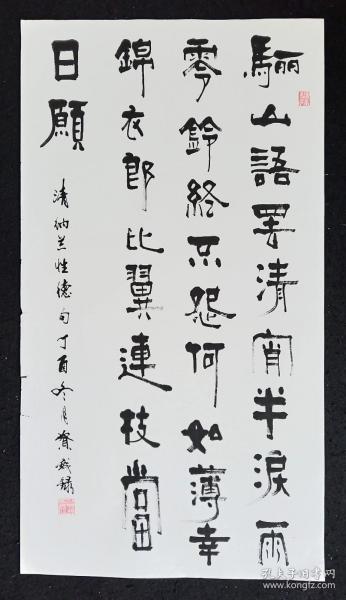 驪山語罷清宵半淚雨
零鈴終不怨何如薄幸
錦衣郎比翼連枝當
日願
清納兰性德句丁酉冬月
孔夫子旧书网